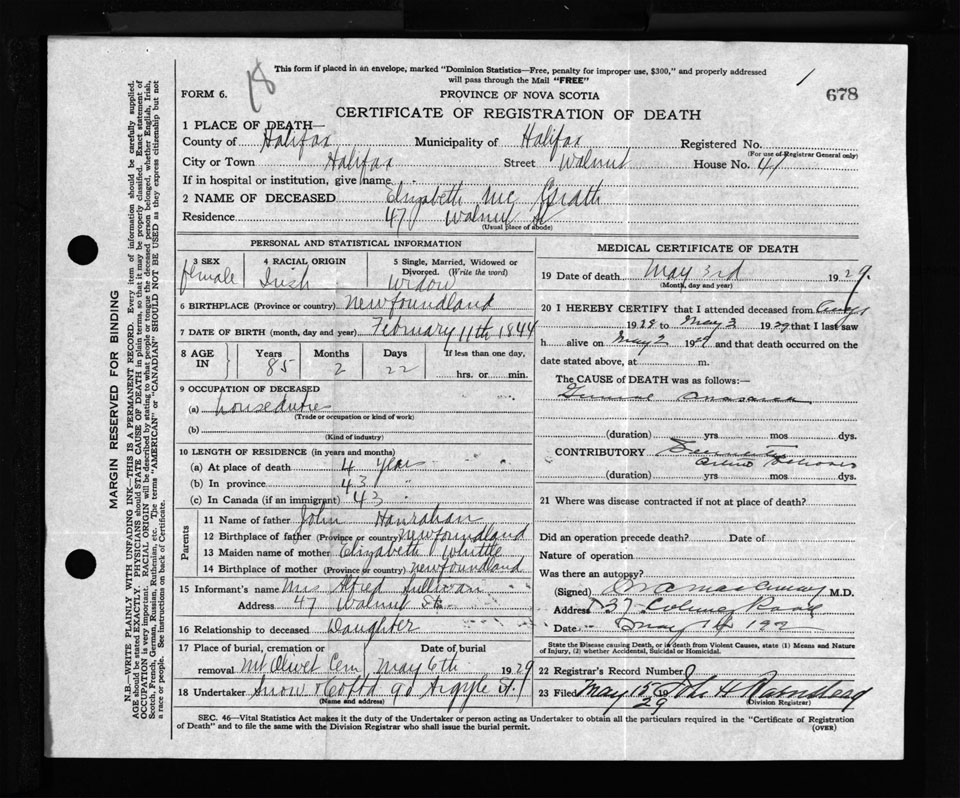 18
This form if placed in an envelope, marked "Dominion Statistics—Free, penalty for improper use, $300," and properly addressed
will pass through the Mail "FREE"
1
678
FORM 6.
PROVINCE OF NOVA SCOTIA
CERTIFICATE OF REGISTRATION OF DEATH
1 PLACE OF DEATH—
County of Halifax Municipality of Halifax Registered No.
(For use of Registrar General only)
City or Town Halifax Street Walnut House No. 47
If in hospital or institution, give name
2 NAME OF DECEASED Elizabeth McGrath
Residence 47 Walnut St
(Usual place of abode)
PERSONAL AND STATISTICAL INFORMATION
3 SEX female
4 RACIAL ORIGIN Irish
5 Single, Married, Widowed or
Divorced. (Write the word)
Widow
6 BIRTHPLACE (Province or country) Newfoundland
7 DATE OF BIRTH (month, day and year) February 11th 1844
8 AGE IN
Years 85
Months 2
Days 22
If less than one day,
hrs. or min.
9 OCCUPATION OF DECEASED
(a) house duties
(Trade or occupation or kind of work)
(b)
(Kind of industry)
10 LENGTH OF RESIDENCE (in years and months)
(a) At place of death 4 years
(b) In province 43 "
(c) In Canada (if an immigrant) 43 "
Parents
11 Name of father John Hanrahan
12 Birthplace of father (Province or country) Newfoundland
13 Maiden name of mother Elizabeth Whittle
14 Birthplace of mother (Province or country) Newfoundland
15 Informant's name Mrs Alfred Sullivan
Address 47 Walnut St
16 Relationship to deceased Daughter
17 Place of burial, cremation or Date of burial
removal Mt Olivet Cem May 6th 1929
18 Undertaker Snow & Co Ltd 90 Argyle St.
(Name and address)
MEDICAL CERTIFICATE OF DEATH
19 Date of death May 3rd 1929.
(Month, day and year)
20 I HEREBY CERTIFY that I attended deceased from
1928 to May 3 1929 that I last saw
h alive on May 2 1929 and that death occurred on the
date stated above, at m.
The CAUSE OF DEATH was as follows:—
(duration) yrs mos dys.
CONTRIBUTORY
(duration) yrs mos dys.
21 Where was disease contracted if not at place of death?
Did an operation precede death? Date of
Nature of operation
Was there an autopsy?
(Signed) M.D.
Address 237
Date May 14 192
State the Disease causing Death, or in death from Violent Causes, state (1) Means and Nature
of Injury, (2) whether Accidental, Suicidal or Homicidal.
22 Registrar's Record Number
23 Filed May 15 1929 John H
(Division Registrar)
SEC. 46—Vital Statistics Act makes it the duty of the Undertaker or person acting as Undertaker to obtain all the particulars required in the "Certificate of Registration
of Death" and to file the same with the Division Registrar who shall issue the burial permit.
(OVER)
MARGIN RESERVED FOR BINDING
N.B.—WRITE PLAINLY WITH UNFADING INK—THIS IS A PERMANENT RECORD. Every item of information should be carefully supplied.
AGE should be stated EXACTLY. PHYSICIANS should STATE CAUSE OF DEATH in plain terms, so that it may be properly classified. Exact statement of
OCCUPATION is very important. RACIAL ORIGIN will be described by stating to what people or tongue the deceased person belonged, whether English, Irish,
Scotch, French, German, Russian, Ruthenian, etc. The terms "AMERICAN" or "CANADIAN" SHOULD NOT BE USED as they express citizenship but not
a race or people. See instructions on back of Certificate.